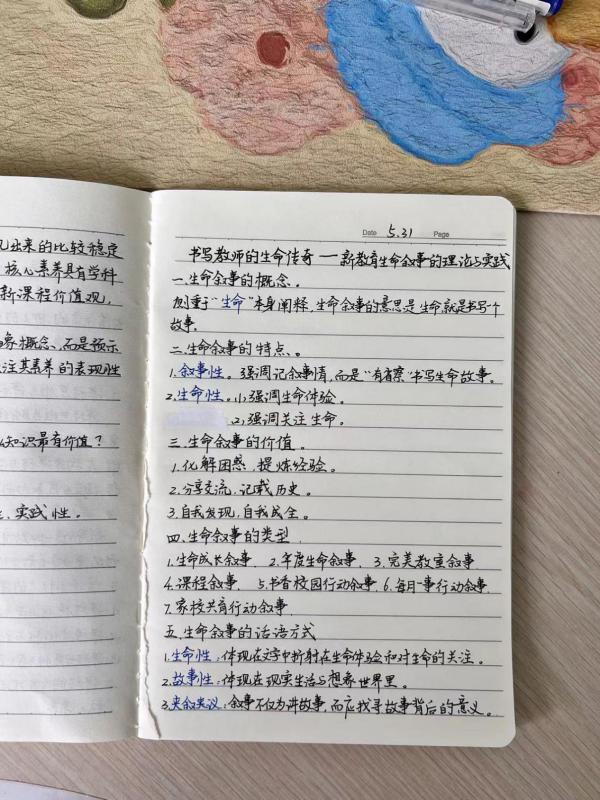 出来的比较稳定
核心素养具有学科
新课程价值观,
象概念,而是预示
注其素养的表现性
知识最有价值?
、实践性。
Date 5.31 Page
书写教师的生命传奇——新教育生命叙事的理论与实践
一.生命叙事的概念。
侧重于“生命”本身阐释,生命叙事的意思是生命就是书写个
故事.
二.生命叙事的特点。
1.叙事性。强调记叙事情,而是“有着意”书写生命故事。
2.生命性。1)强调生命体验.
2)强调关注生命。
三.生命叙事的价值。
1.化解困惑,提炼经验。
2.分享交流,记载历史。
3.自我发现,自我成全。
四.生命叙事的类型.
1.生命成长叙事. 2.年度生命叙事. 3.完美教室叙事
4.课程叙事. 5.书香校园行动叙事 6.每月一事行动叙事.
7.家校共育行动叙事.
五.生命叙事的话语方式
1.生命性:体现在文字中折射在生命体验和对生命的关注。
2.故事性:体现在现实生活与想象世界里。
3.夹叙夹议:叙事不仅为讲故事,而应找寻故事背后的意义。